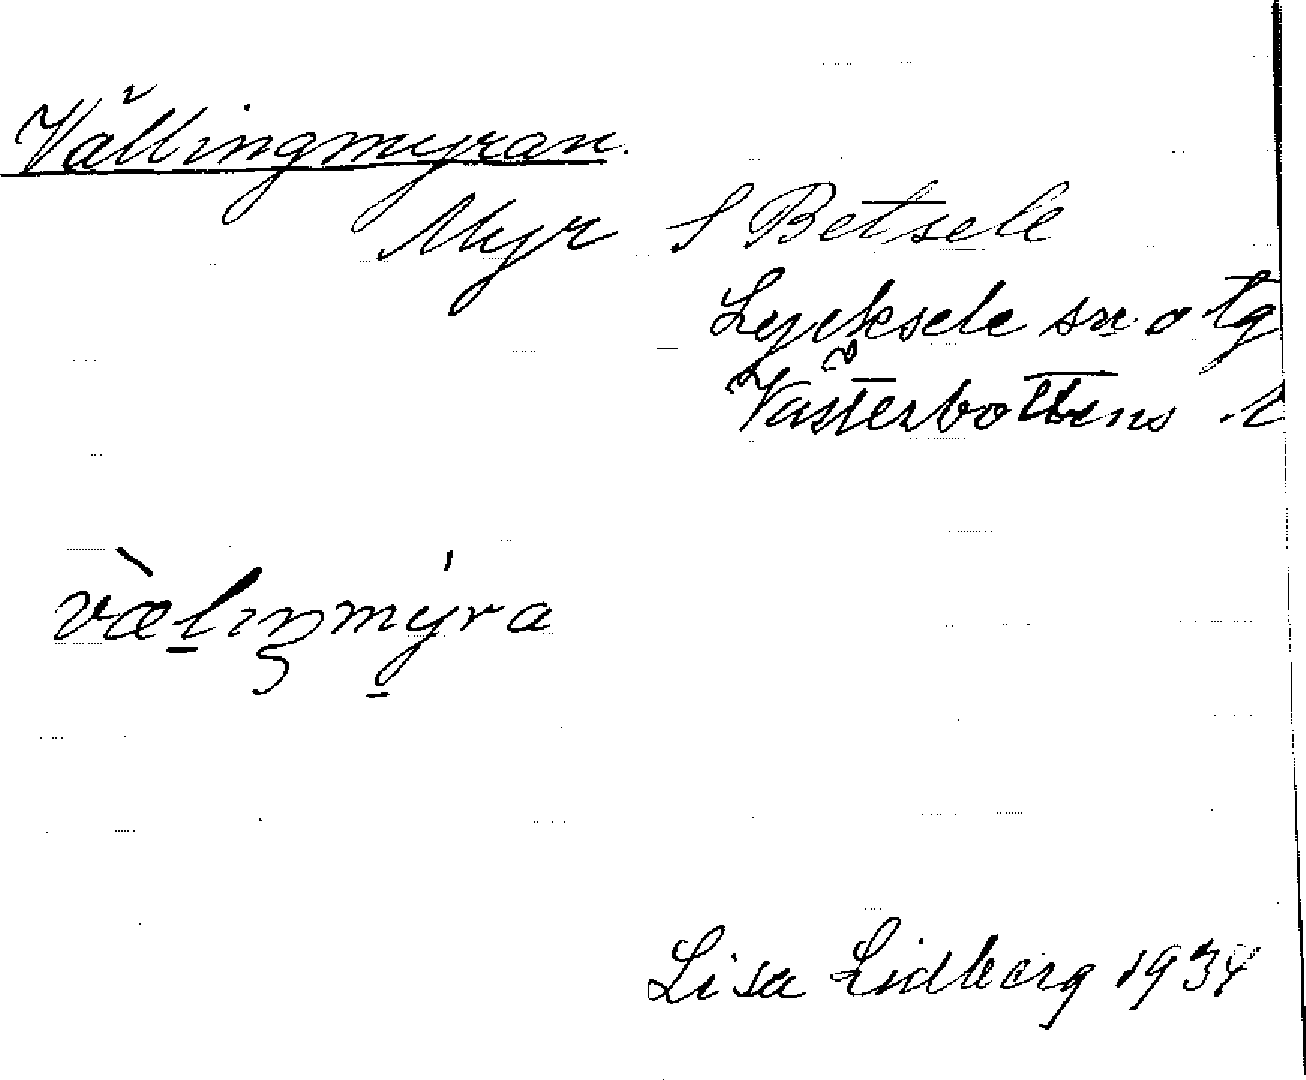 Vällingmyran.
Myr S Betsele
Lycksele sn o tg
Västerbottens l
væ̀lıŋmýra
Lisa Lidberg 1934